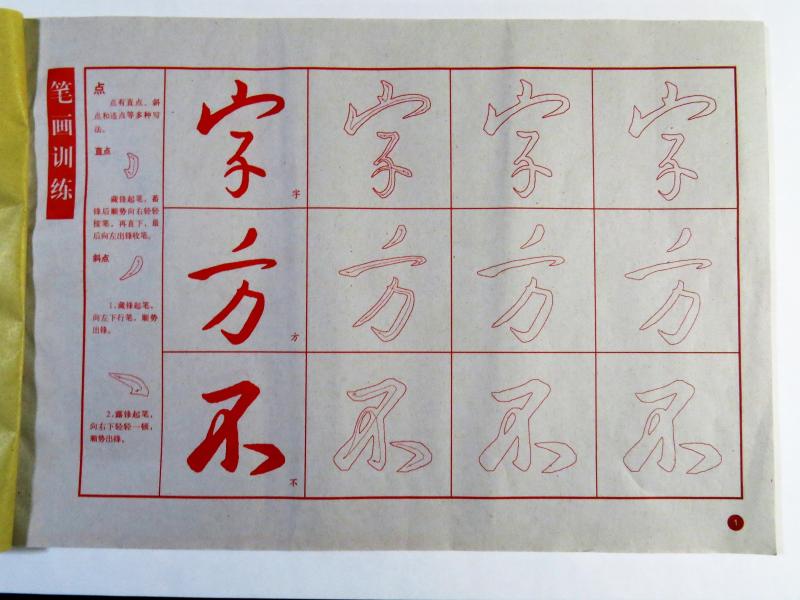 笔画训练
点
点有直点、斜
点和连点等多种写
法。
直点
藏锋起笔，蓄
锋后顺势向右轻轻
按笔，再直下，最
后向左出锋收笔。
斜点
1.藏锋起笔，
向左下行笔，顺势
出锋。
2.露锋起笔，
向右下轻轻一顿，
顺势出锋。
字 字 字 字 字
方 方 方 方 方
不 不 不 不 不
1